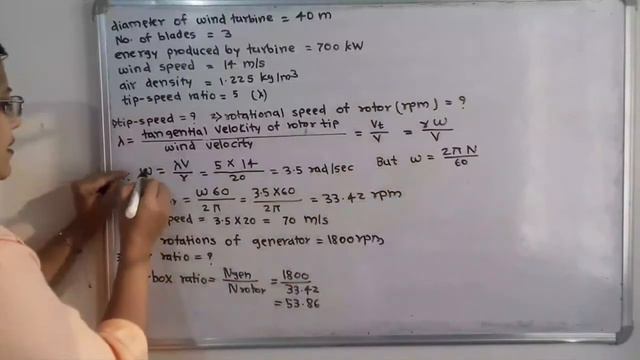 diameter of wind turbine = 40 m
No. of blades = 3
energy produced by turbine = 700 kW
wind speed = 14 m/s
air density = 1.225 kg/m3
tip-speed ratio = 5 (λ)
tip-speed = ? 2> rotational speed of rotor (rpm) = ?
λ = tangential velocity of rotor tip / wind velocity = Vt / V = rω / V
ω = λV / r = 5 × 14 / 20 = 3.5 rad/sec But ω = 2πN / 60
= ω 60 / 2π = 3.5×60 / 2π = 33.42 rpm
speed = 3.5×20 = 70 m/s
rotations of generator = 1800 rpm
ratio = ?
box ratio = Ngen / Nrotor = 1800 / 33.42
= 53.86